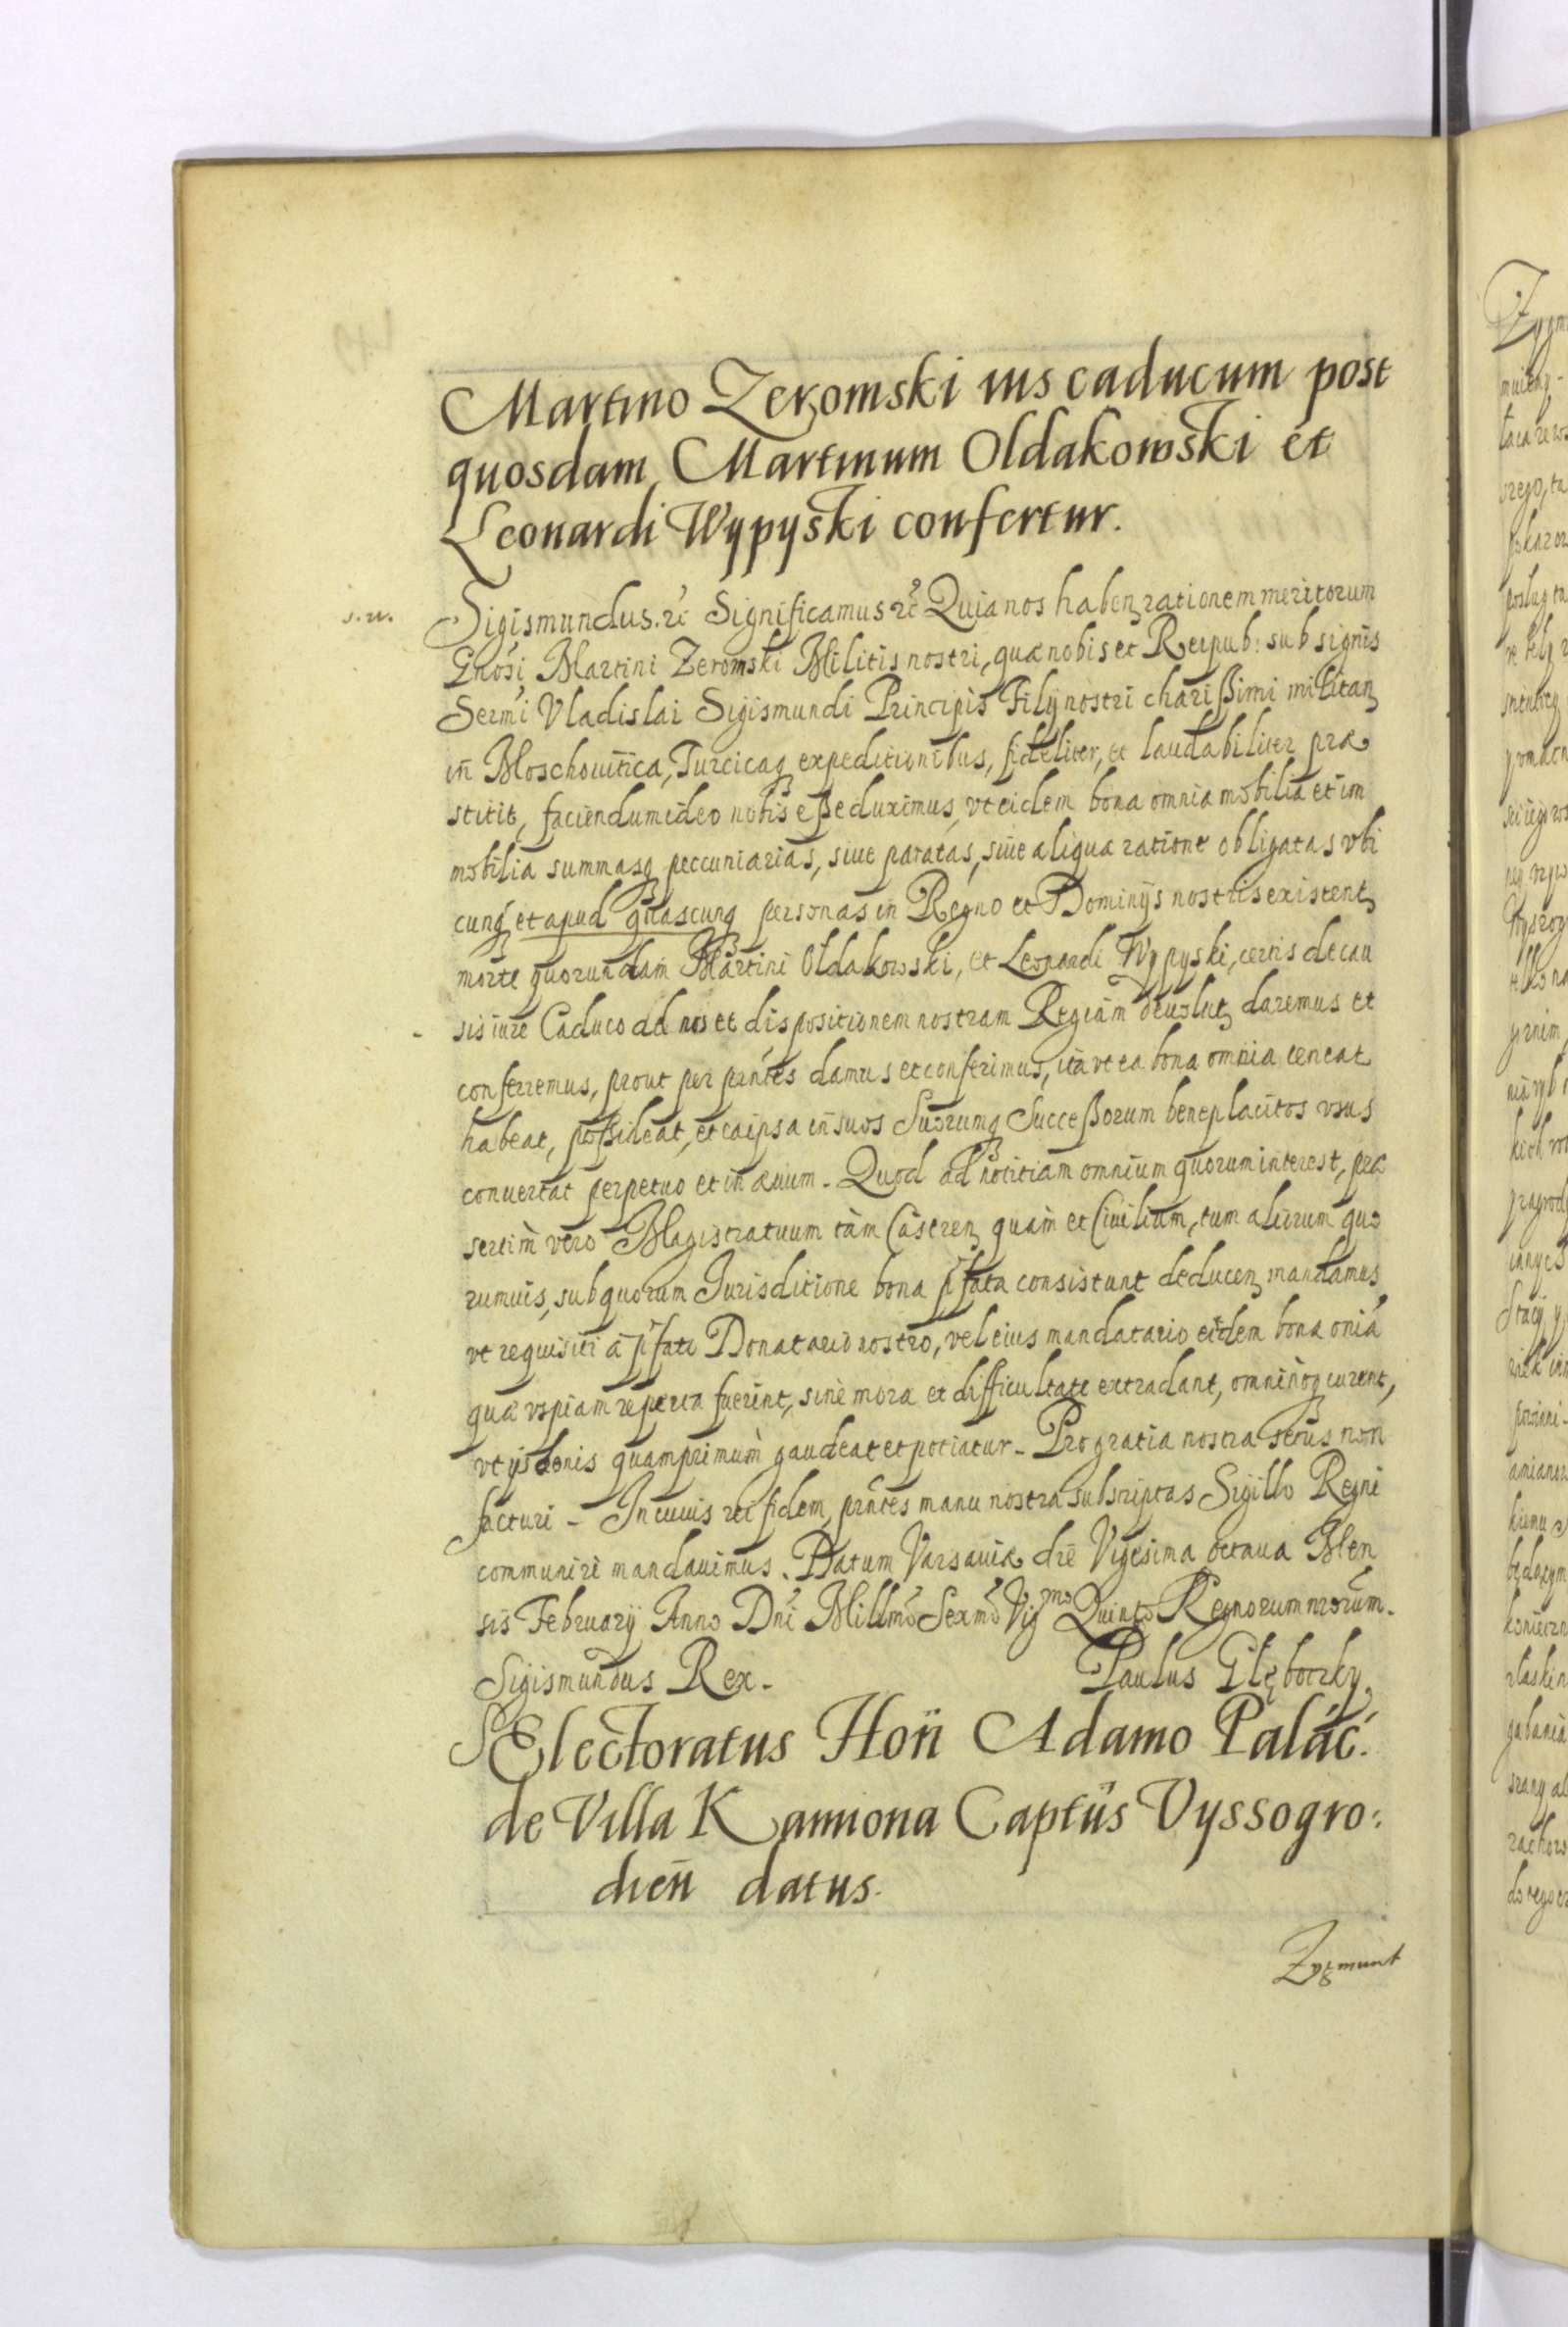 Martino Zeromski ius caducum post
quosdam Martinum Oldakowski et
Leonardi Wypyski confertur.
s.n.
Sigismundus. &c Significamus &c Quia nos habenꝫ rationem meritorum
Gnosi Martini Zeromski Militis nostri, quæ nobis et Reipub: sub signis
Sermi Vladislai Sigismundi Principis Filij nostri charißimi militanꝫ
in Moschouitica, Turcicaqꝫ expeditionibus, fideliter, et laudabiliter præ
stitit, faciendum ideo nobis eße duximus, vt eidem bona omnia mobilia et im
mobilia summasqꝫ peccuniarias, siue paratas, siue aliqua ratione obligatas vbi
cunqꝫ et apud quascunqꝫ personas in Regno et Dominijs nostris existentꝫ
morte quorundam Martini Oldakowski, et Leonardi Wypyski, certis de cau
sis iure Caduco ad nos et dispositionem nostram Regiam deuolutꝫ daremus et
conferremus, prout per pñtes damus et conferimus, ita vt ea bona omnia teneat
habeat, poßideat, et ea ipsa in suos Suorumqꝫ Succeßorum beneplacitos vsus
conuertat perpetuo et in æuum. Quod ad notitiam omnium quorum interest, præ
sertim vero Magistratuum tam Castrenꝫ quam et Ciuilium, tum aliorum quo
rumuis, sub quorum Jurisditione bona pfata consistunt deducenꝫ mandamus
vt requisiti a pfato Donatario nostro, vel eius mandatario eidem bona onia
quæ vspiam reperta fuerint, sine mora et difficultate extradant, omninoqꝫ curent,
vt ijs bonis quamprimum gaudeat et potiatur. Pro gratia nostra secus non
facturi. In cuius rei fidem, pñtes manu nostra subscriptas Sigillo Regni
communiri mandauimus. Datum Varsauiæ die Vigesima octaua Men
sis February Anno Dni Millmo Sexmo Vigmo Quinto Regnorum nrorum.
Sigismundus Rex. Paulus Głęboczky
Electoratus Hon Adamo Palac.
de Villa Kamiona Captus Vyssogro:
dien datus.
Zygmunt